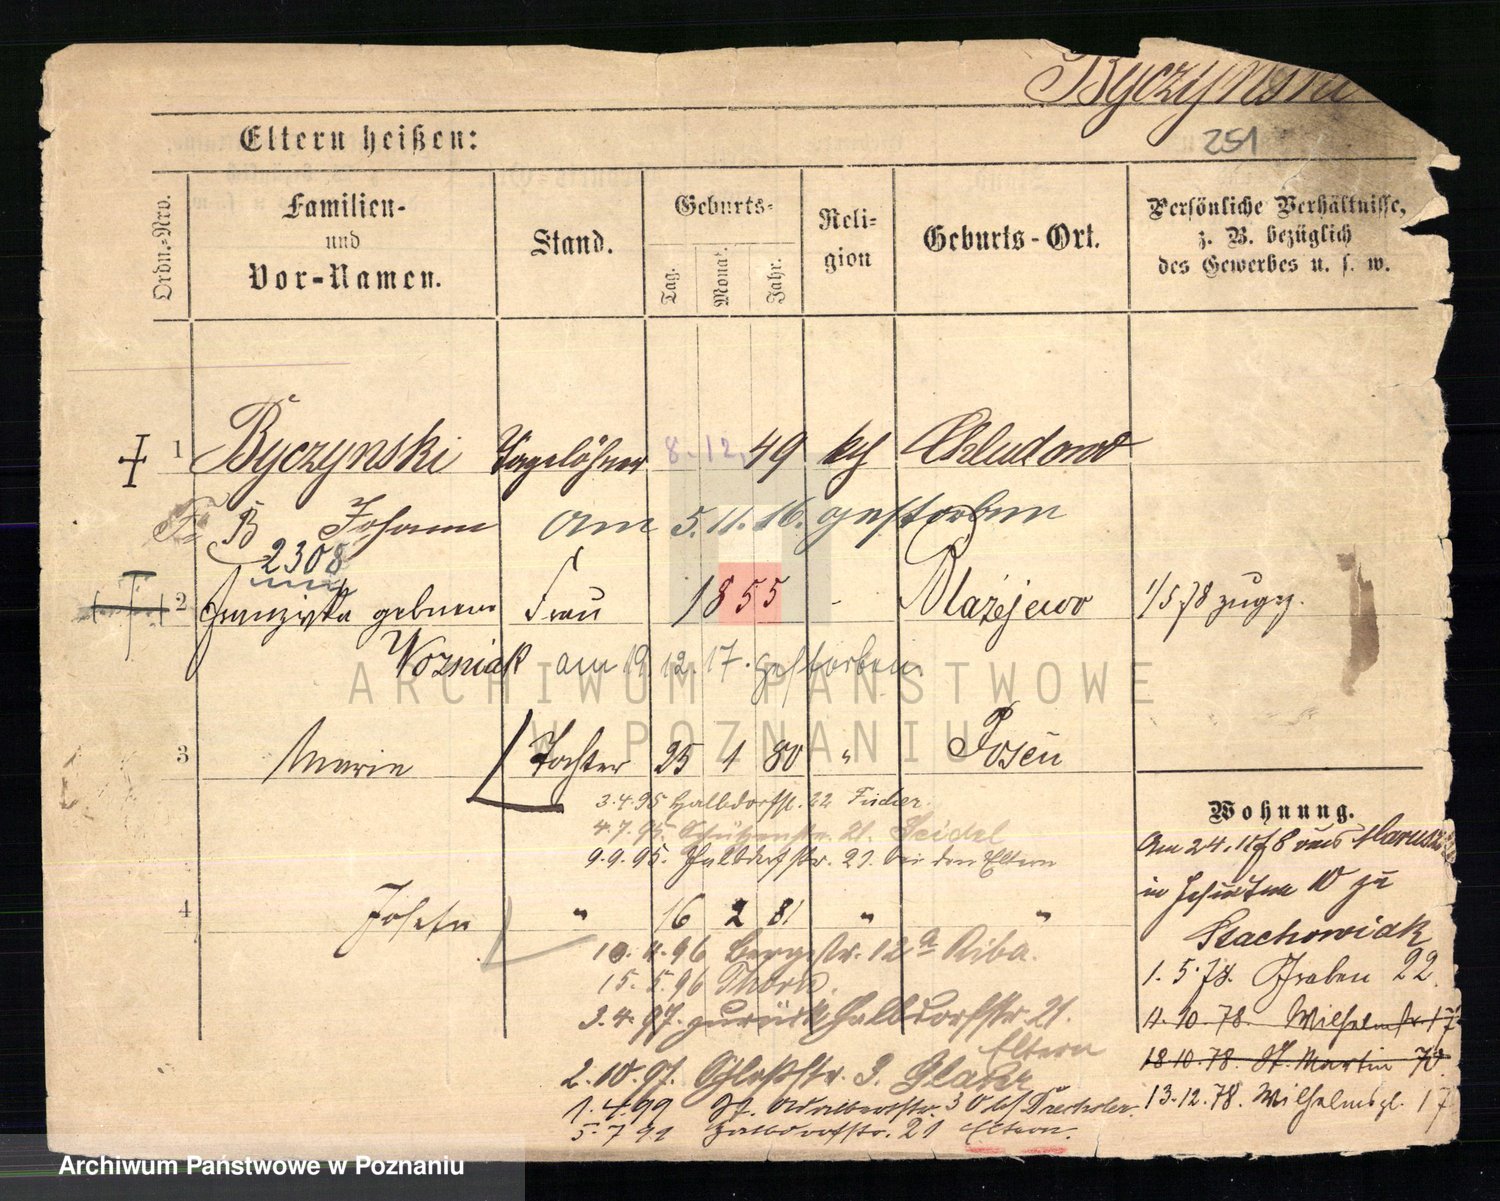 Byczynski
251
Eltern heißen:
Ordn.-Nro.
Familien-
und
Vor-Namen.
Stand.
Geburts-
Tag.
Monat.
Jahr.
Reli-
gion
Geburts-Ort.
Persönliche Verhältnisse,
z. B. bezüglich
des Gewerbes u. s. w.
1 Byczynski Tagelöhner 8. 12. 49 kth
B Johann am 5.11.16. gestorben
2308
2 Franziska geborne Frau 1855 - Blażejewo 1/5 78 zugez.
Wozniak am 19.12.17. gestorben.
3 Marie Tochter 25 1 80 " Posen
3.4.95 Halbdorfstr. 22 Fischer.
4.7.95. Schützenstr. 21. Seidel
9.9.95. Halbdorfstr. 21. bei den Eltern
4 Josefa " 16 2 81 " "
10.4.96 Bergstr. 12a Riba.
15.5.96 Thorn.
3.4.97. zurück Halbdorfstr. 21.
Eltern
2.10.97. Schloßstr. 3.
1.4.99 St. Adalbertstr. 30 bei Drechsler.
5.7.99 Halbdorfstr. 21 Eltern.
Wohnung.
Am 24.
in 10 zu
Stachowiak
1.5.78. Graben 22.
4.10.78. Wilhelmstr. 17
18.10.78. St. Martin 70.
13.12.78. Wilhelmspl. 17
ARCHIWUM PAŃSTWOWE
W POZNANIU
Archiwum Państwowe w Poznaniu